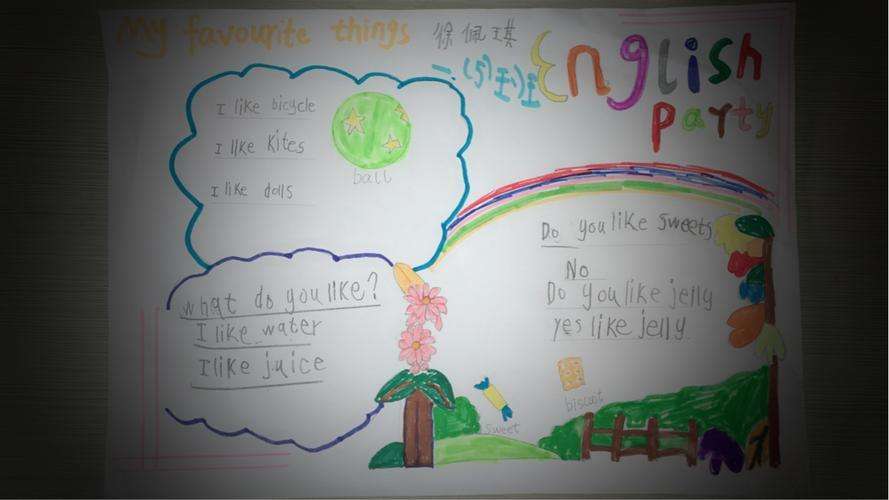 My favourite things
徐佩琪
一(5)班
English
Party
I like bicycle
I like kites
I like dolls
ball
What do you like?
I like water
I like juice
Do you like sweets
No
Do you like jelly
yes like jelly
sweet
biscuit